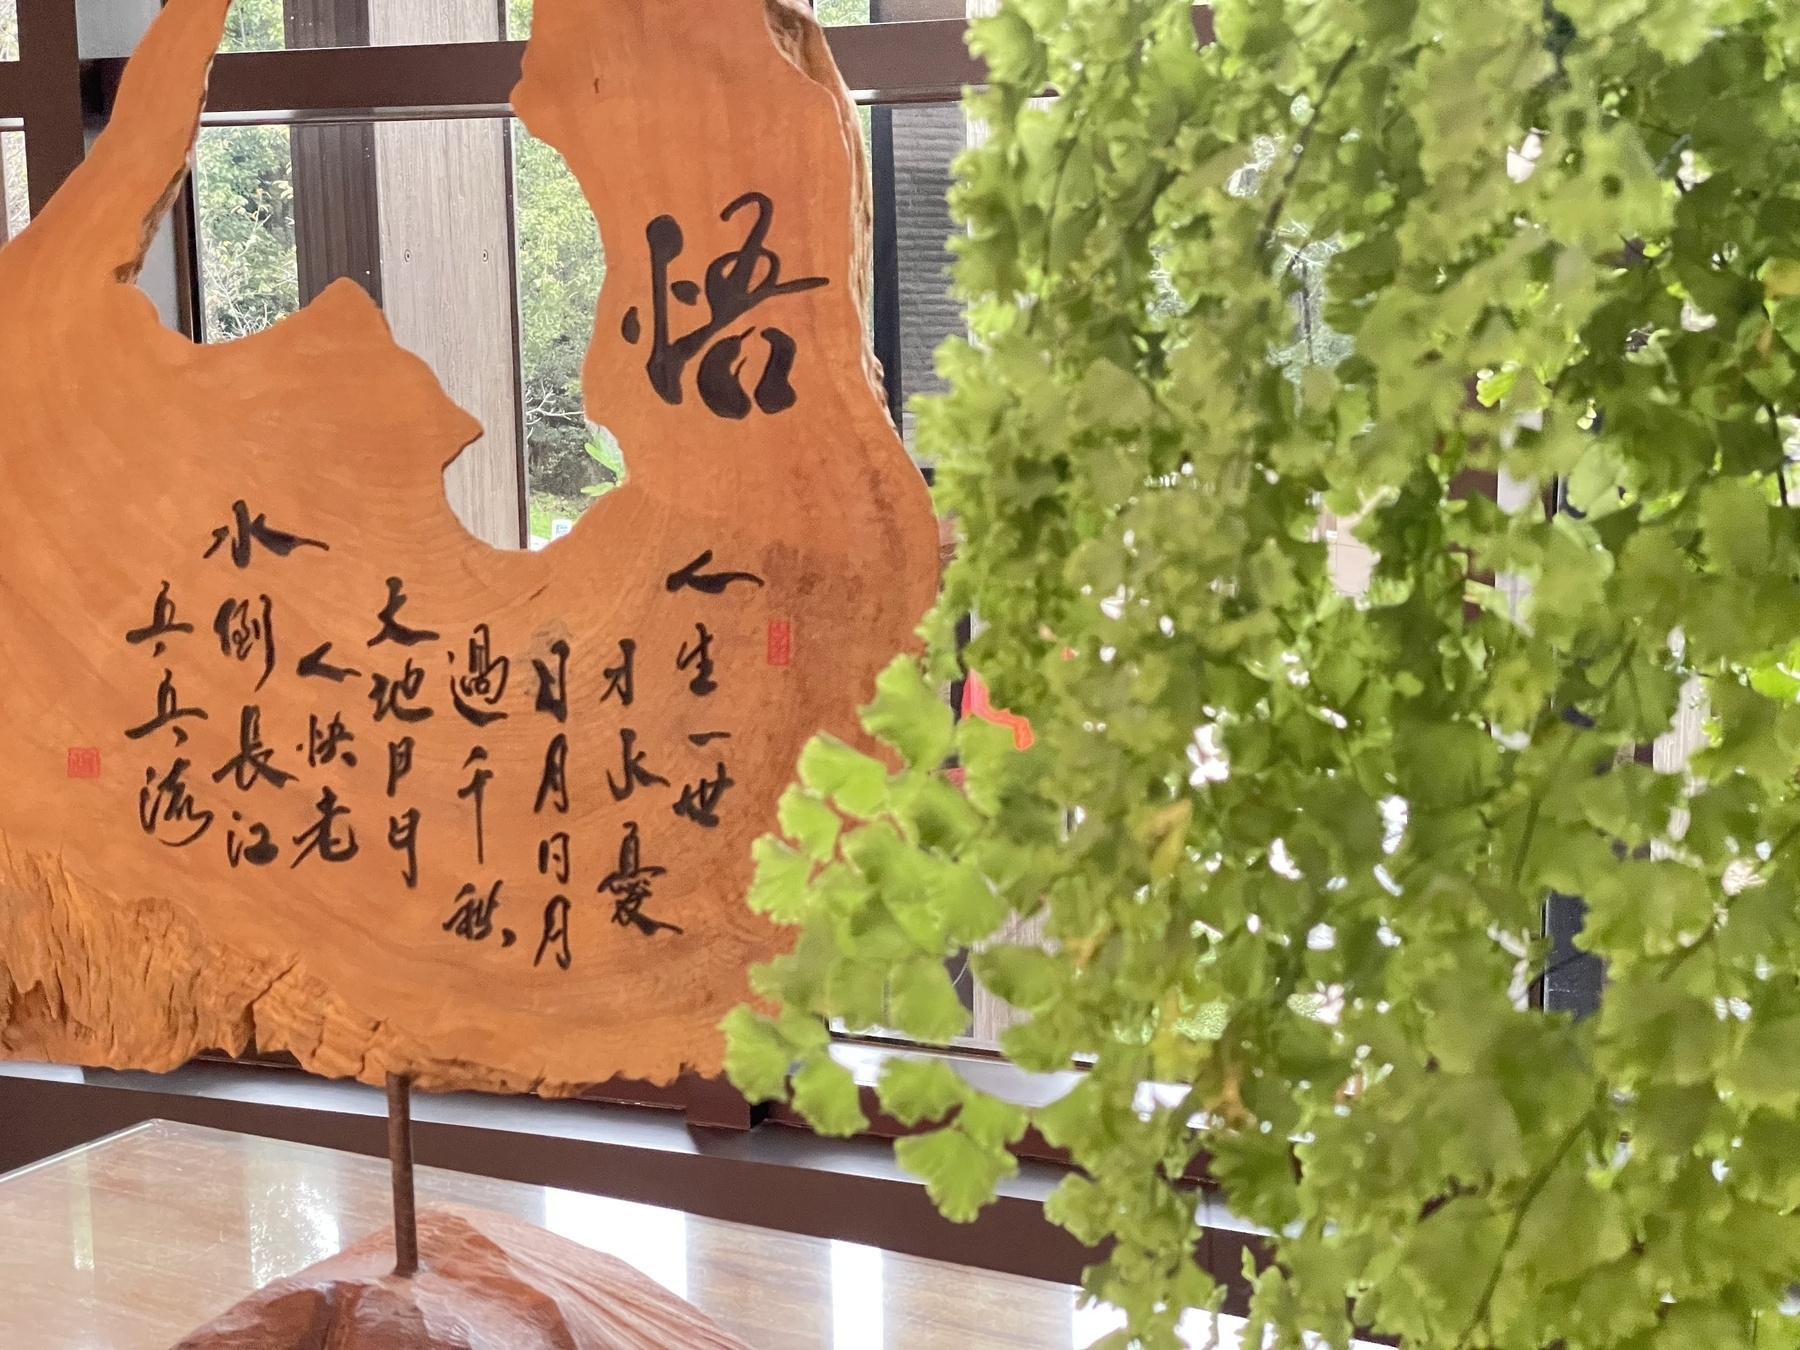 悟
人生一世
才 憂
日月日月
過千秋
天地日月
人快老
水倒長江
兵兵流